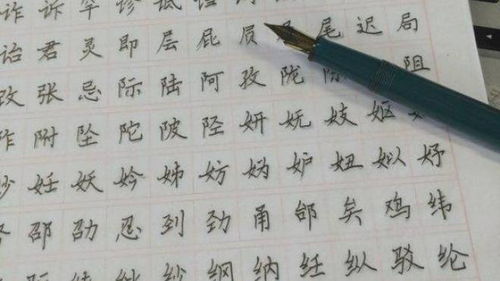 诈 诉 罕 诊 诋
诒 君 灵 即 层 屁 屃 尾 迟 局
改 张 忌 际 陆 阿 孜 陇 阻
阼 附 坠 陀 陂 陉 妍 妩 妓 妪
妙 妊 妖 妗 姊 妨 妫 妒 妞 姒 妤
邵 劭 忍 刭 劲 甬 邰 矣 鸡 纬
纱 纲 纳 纴 纵 驳 纶